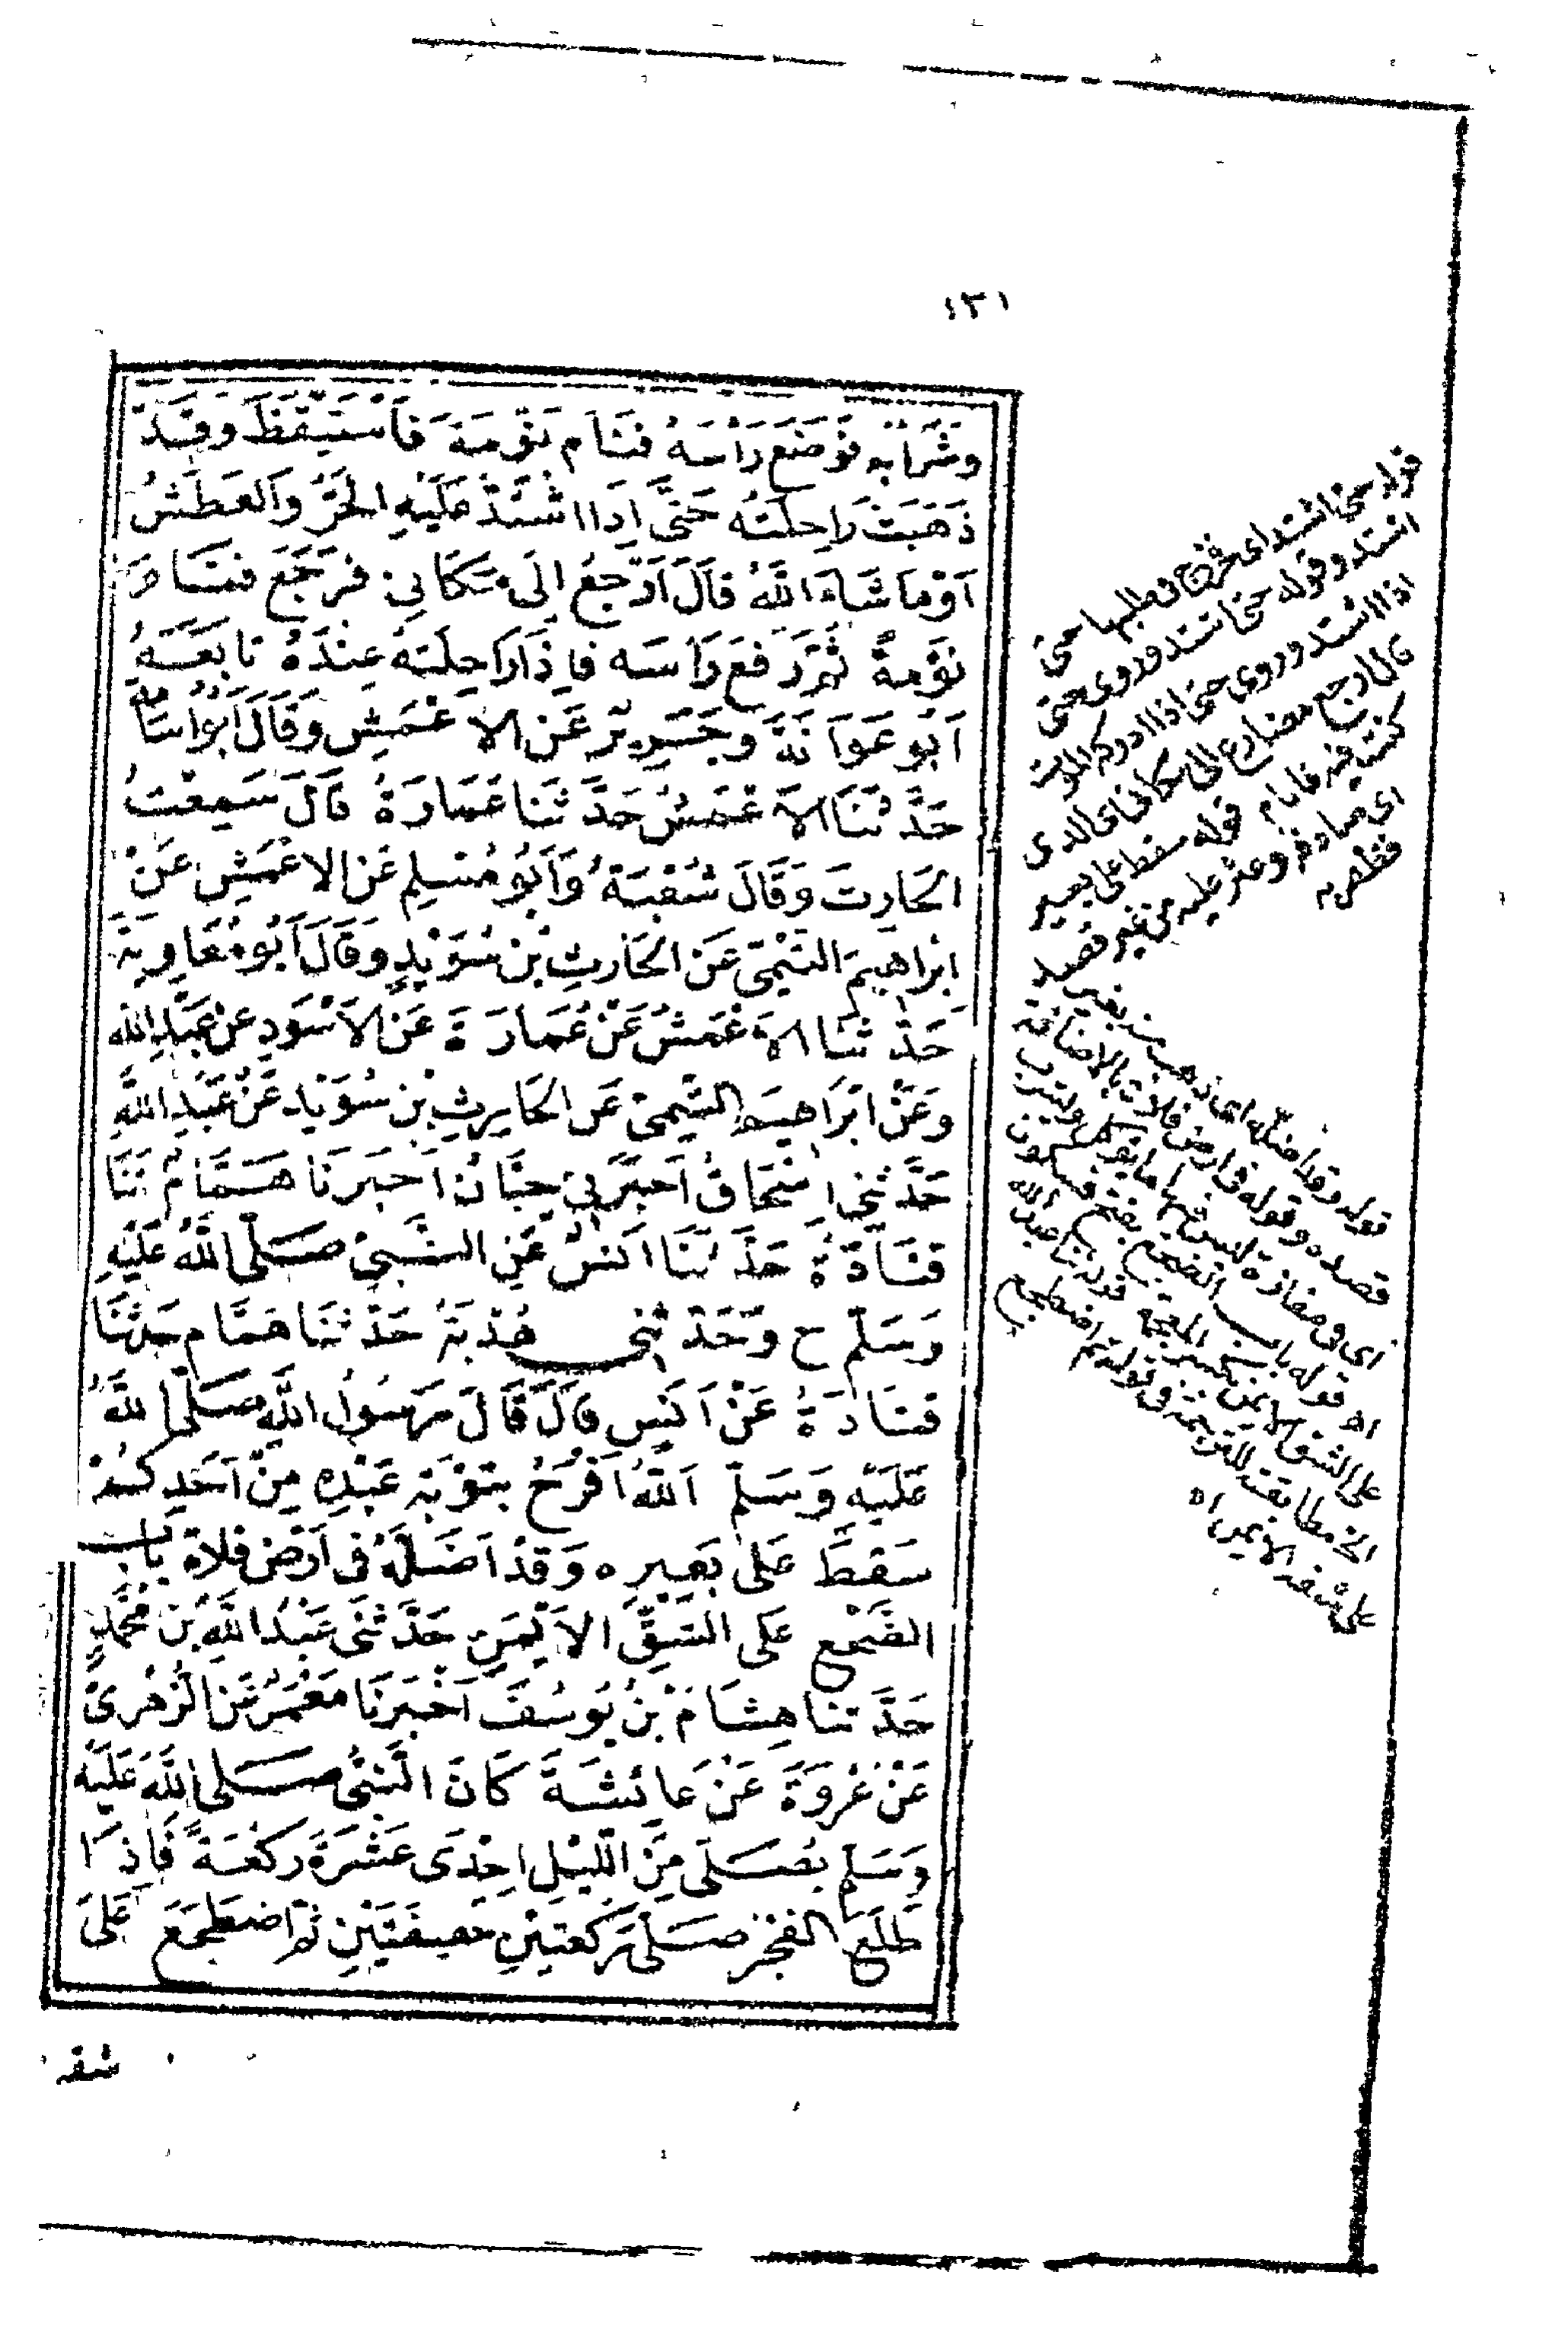 ٤٣١
وَشَرَابُهُ فَوَضَعَ رَأْسَهُ فَنَامَ نَوْمَةً فَاسْتَيْقَظَ وَقَدْ
ذَهَبَتْ رَاحِلَتُه حَتَّى اِذَا اشْتَدَّ عَلَيْهِ الْحَرُّ وَالعَطَشُ
اَوْ مَا شَاءَ اللَّهُ قَالَ اَرْجِعُ اِلَى مَكَانِي فَرَجَعَ فَنَامَ
نَوْمَةً ثُمَّ رَفَعَ رَاْسَه فَاِذَا رَاحِلَتهُ عِنْدَهُ تَابَعَهُ
اَبُو عَوَانَةَ وَجَرِيرٌ عَنِ الاَعْمَشِ وَقَالَ اَبُو اُسَامَةَ
حَدَّثَنَا الاَعْمَشُ حَدَّثَنَا عُمَارَةُ قَالَ سَمِعْتُ
الحَارِثَ وَقَالَ شُعْبَةُ وَاَبُو مُسْلِمٍ عَنِ الاَعْمَشِ عَنْ
اِبْرَاهِيمَ التَّيْمِيِّ عَنِ الحَارِثِ بْنِ سُوَيْدٍ وَقَالَ اَبُو مُعَاوِيَةَ
حَدَّثَنَا الاَعْمَشُ عَنْ عُمَارَةَ عَنِ الاَسْوَدِ عَنْ عَبْدِ اللهِ
وَعَنْ اِبْرَاهِيمَ التَّيْمِيِّ عَنِ الحَارِثِ بْنِ سُوَيْدٍ عَنْ عَبْدِ اللَّهِ
حَدَّثَنِي اِسْحَاقُ اَخْبَرَنِي حِبَّانُ اَخْبَرَنَا هَمَّامٌ ثَنَا
قَتَادَةُ حَدَّثَنَا اَنَسٌ عَنِ النَّبِيِّ صَلَّى اللَّهُ عَلَيْهِ
وَسَلَّمَ ح وَحَدَّثَنِي هُدْبَةُ حَدَّثَنَا هَمَّام حَدَّثَنَا
قَتَادَةُ عَنْ اَنَسٍ قَالَ قَالَ رَسُولُ اللَّهِ صَلَّى اللَّهُ
عَلَيْهِ وَسَلَّمَ اَللَّهُ اَفْرَحُ بِتَوْبَةِ عَبْدِهِ مِنْ اَحَدِكُمْ
سَقَطَ عَلَى بَعِيرِه وَقَدْ اَضَلَّهُ فِي اَرْضِ فَلاَةٍ بَابُ
الضَّجْعِ عَلَى الشِّقِّ الاَيْمَنِ حَدَّثَنِي عَبْدُ اللَّهِ بْنُ مُحَمَّدٍ
حَدَّثَنَا هِشَامُ بْنُ يُوسُفَ اَخْبَرَنَا مَعْمَرٌ عَنِ الزُّهْرِيِّ
عَنْ عُرْوَةَ عَنْ عَائِشَةَ كَانَ النَّبِيُّ صَلَّى اللَّهُ عَلَيْهِ
وَسَلَّمَ يُصَلِّي مِنَ اللَّيْلِ اِحْدَى عَشْرَةَ رَكْعَةً فَاِذَا
طَلَعَ الفَجْرُ صَلَّى رَكْعَتَيْنِ خَفِيفَتَيْنِ ثُمَّ اضْطَجَعَ عَلَى
شقه
قوله حتى اشتد اى فخرج فى طلبها حتى
اشتد وقوله حتى اشتد وروى حتى
اذا اشتد وروى حتى اذا ادركه الموت
قال ارجع مضارع الى مكانى اى الذى
كنت فيه فانام قوله سقط على بعيره
اى صادفه وعثر عليه من غير قصد
فظفر به
قوله وقد اضله اى ذهب منه بغير
قصده وقوله فى ارض فلاة بالاضافة
اى فى مفازة ليس فيها ما يؤكل ويشرب
اه قوله باب الضجع بفتح فسكون
على الشق الايمن بكسر المعجمة قوله ثنا عبد الله
الخ مطابقته للترجمة فى قوله ثم اضطجع
على شقه الايمن اه